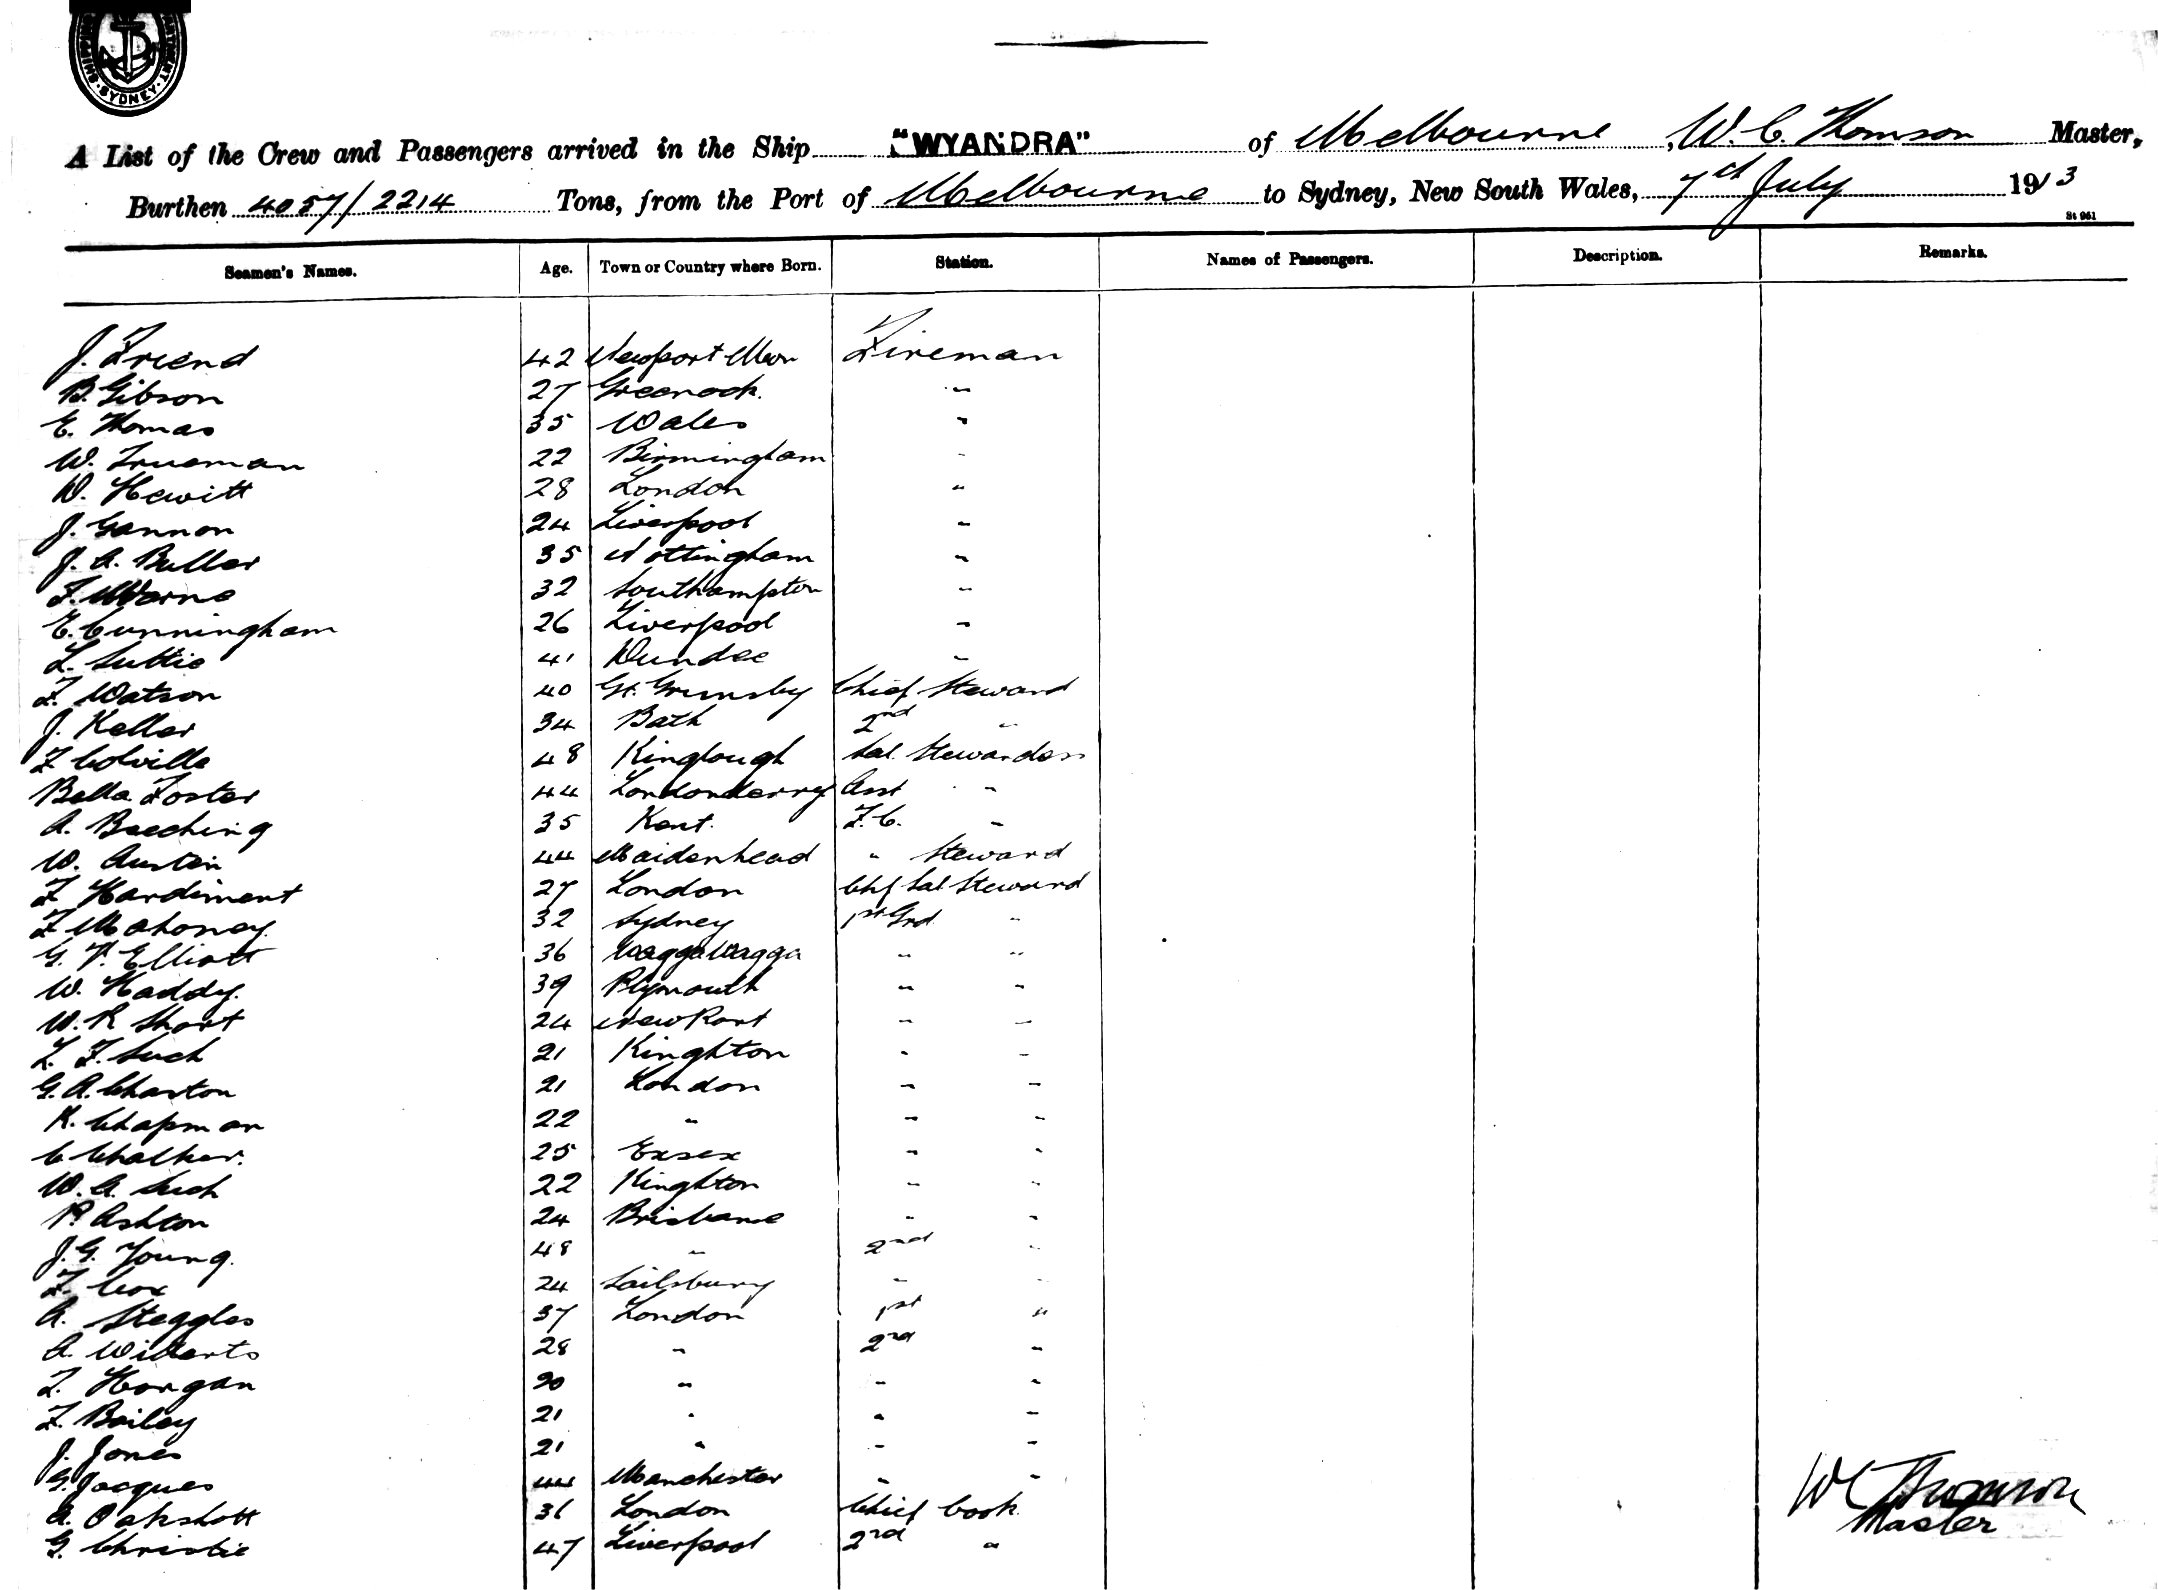 SHIPPING
SYDNEY
A List of the Crew and Passengers arrived in the Ship "WYANDRA" of Melbourne, W. C. Thomson Master,
Burthen 4057/2214 Tons, from the Port of Melbourne to Sydney, New South Wales, 7th July 1913
St 961
Seamen's Names. Age. Town or Country where Born. Station. Names of Passengers. Description. Remarks.
J. Friend 42 Newport Mon Fireman
B. Gibson 27 Greenock. "
E. Thomas 35 Wales "
W. Trueman 22 Birmingham "
W. Hewitt 28 London "
J. Gannon 24 Liverpool "
J. A. Buller 35 Nottingham "
F. Warne 32 Southampton "
E. Cunningham 26 Liverpool "
L. Suttie 41 Dundee "
F. Watson 40 Gt. Grimsby Chief Steward
J. Keller 34 Bath 2nd "
F Colville 48 Kinglough Sal. Stewardess
Bella Foster 44 Londonderry Asst "
A. Beeching 35 Kent. F.C. "
W. Austin 44 Maidenhead " Steward
F Hardiment 27 London Chf Sal Steward
F Mahoney. 32 Sydney 1st Grd "
G. V. Elliott 36 Wagga Wagga " "
W. Haddy. 39 Plymouth " "
W. R Short 24 New Port " "
L. F. Such 21 Kinghton " "
G. A. Charton 21 London " "
K. Chapman 22 " " "
C Chalker. 25 Essex " "
W. A. Such 22 Kinghton " "
P. Ashton 24 Brisbane " "
J. G. Young. 48 " 2nd "
F. Cox 24 Sailsbury " "
A. Steggles 37 London 1st "
A. Willerts 28 " 2nd "
F. Horgan 20 " " "
F. Bailey 21 " " "
J. Jones 21 " " "
G. Jacques 44 Manchester " "
A. Oakshott 31 London Chief Cook.
G. Christie 47 Liverpool 2nd "
W C Thomson
Master